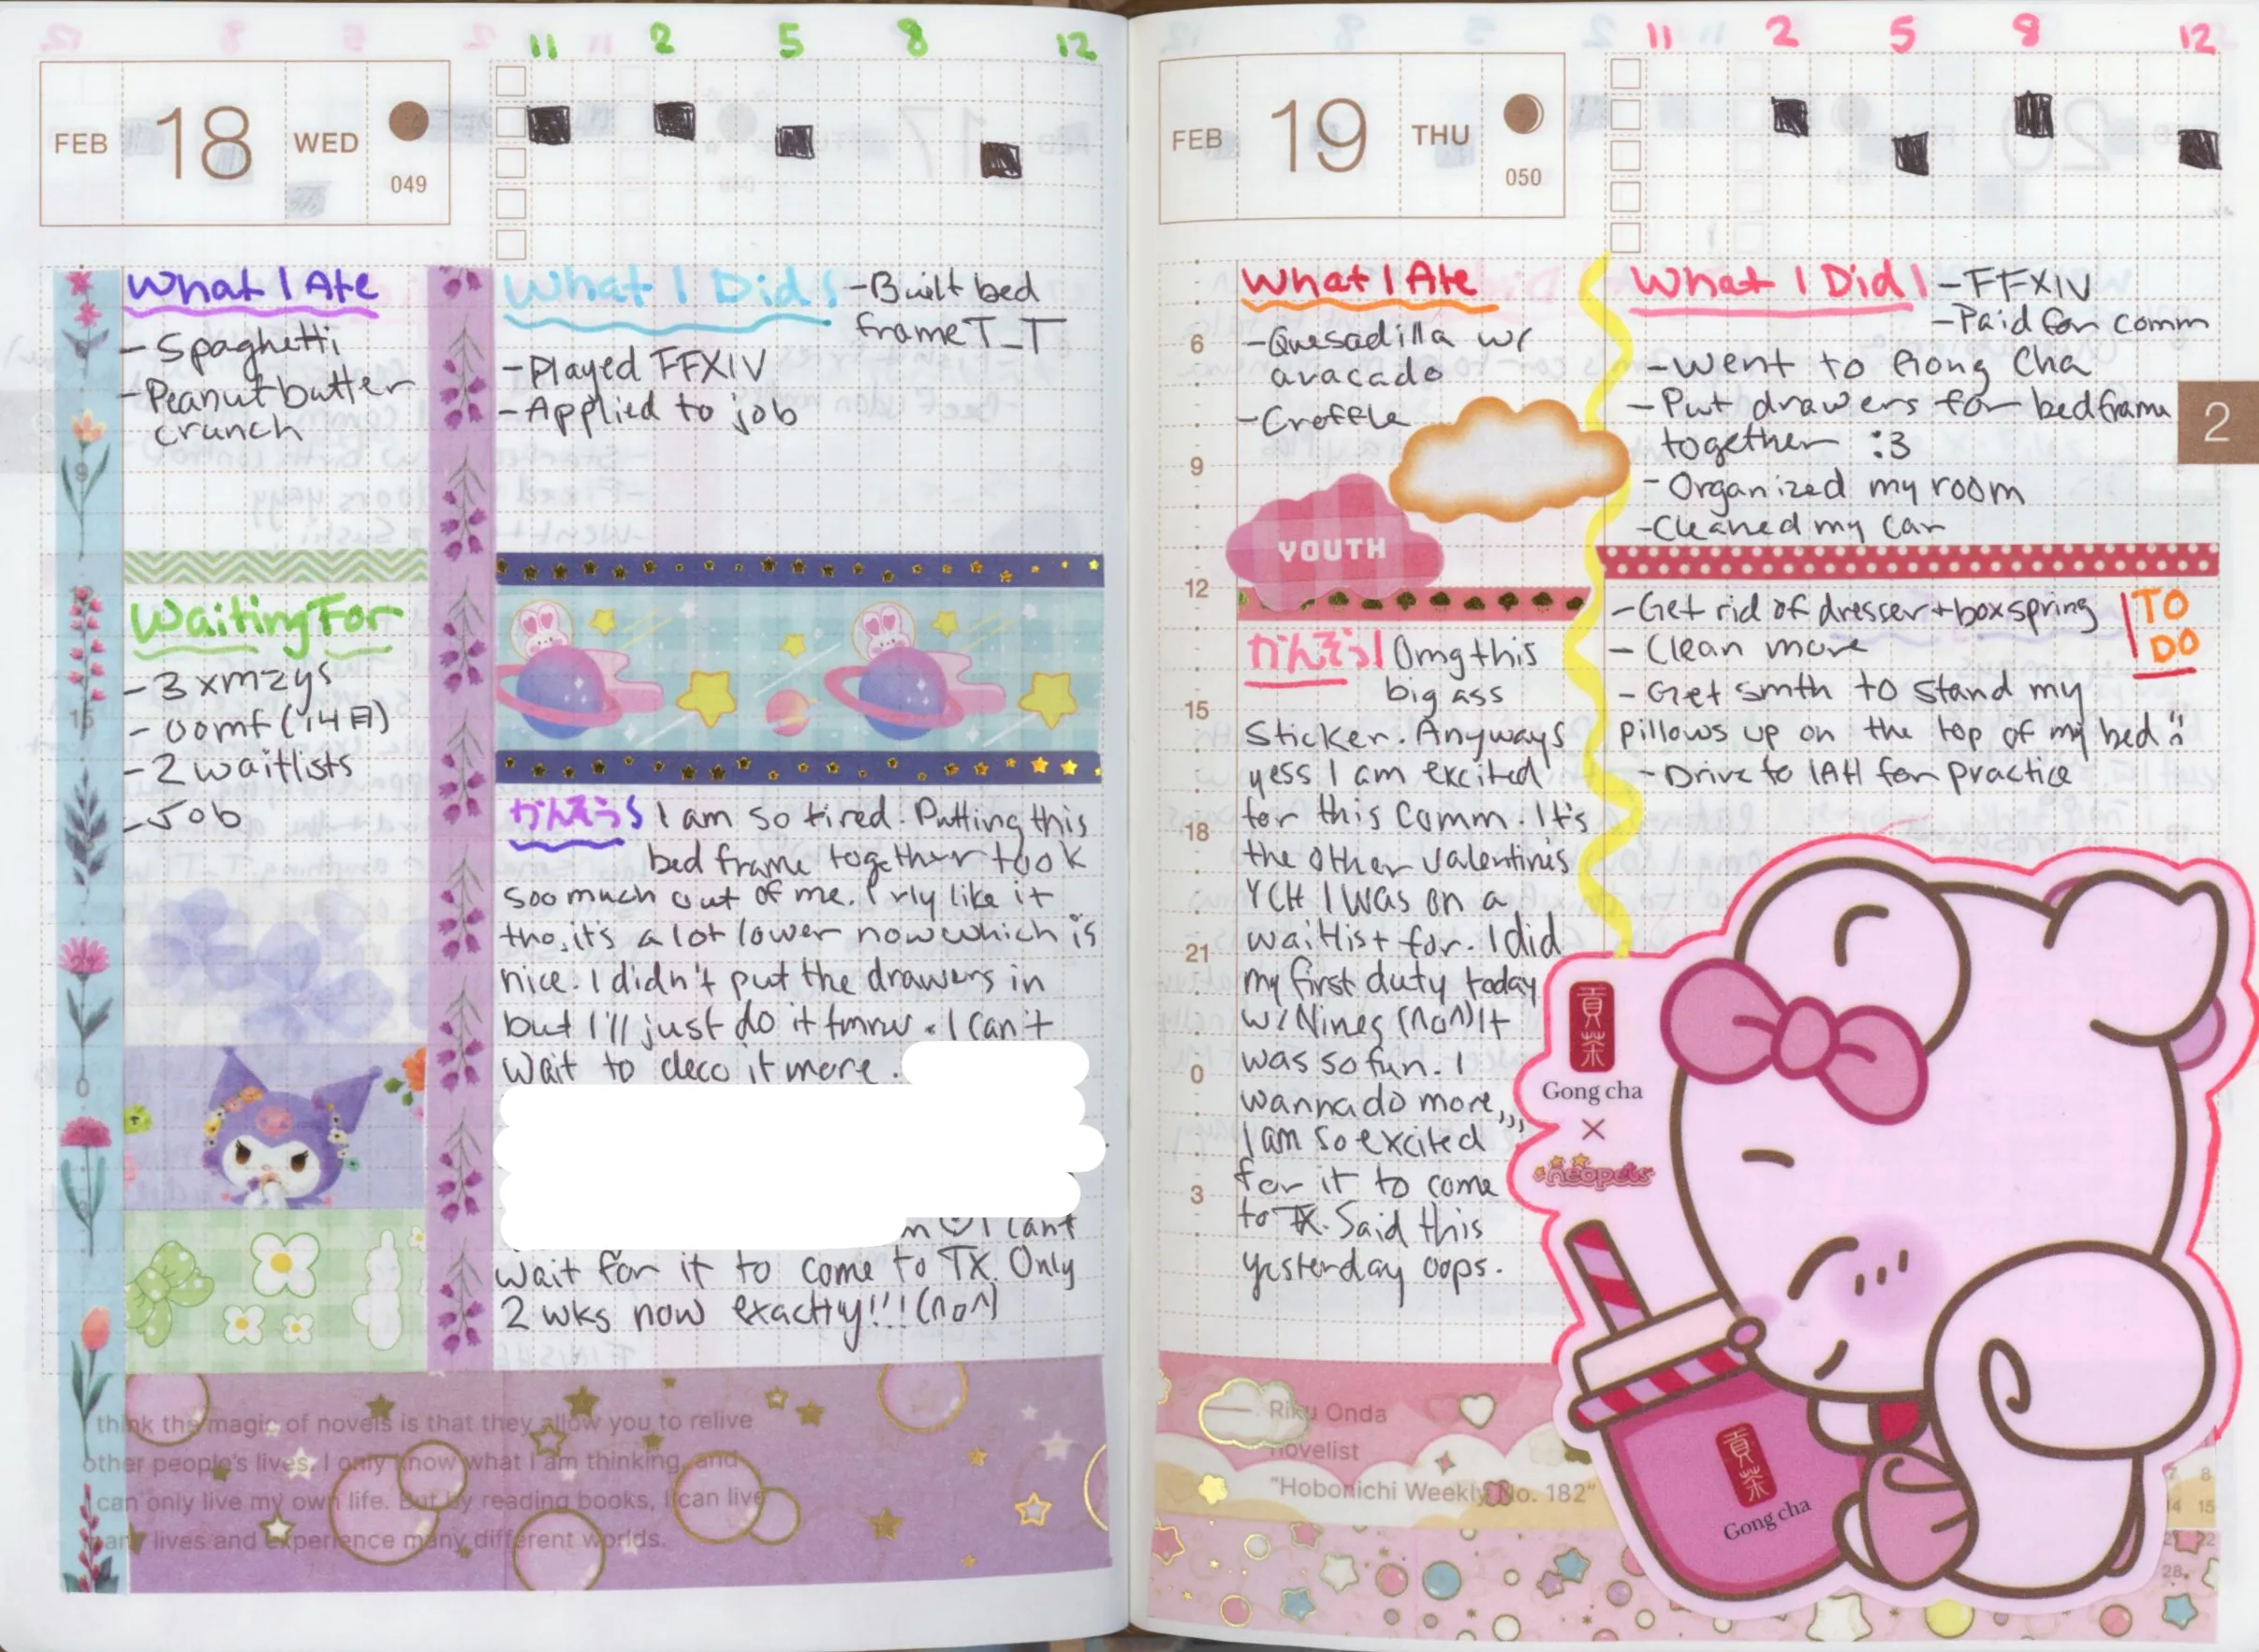 11 2 5 8 12
FEB 18 WED
049
What I Ate
- Spaghetti
- Peanut butter
crunch
What I Did!
- Played FFXIV
- Applied to job
- Built bed
frame T_T
9
12
15
0
Waiting For
- 3 xmzys
- oomf (14日)
- 2 waitlists
- Job
かんそう! I am so tired. Putting this
bed frame together took
soo much out of me. I rly like it
tho, it's a lot lower now which is
nice. I didn't put the drawers in
but I'll just do it tmrw. I can't
wait to deco it more.
I cant
wait for it to come to TX. Only
2 wks now exactly!!! (^o^)
think the magic of novels is that they allow you to relive
other people's lives. I only know what I am thinking, and
can only live my own life. But by reading books, I can live
many lives and experience many different worlds.
11 2 5 8 12
FEB 19 THU
050
2
What I Ate
- Quesadilla w/
avacado
- Croffle
What I Did!
- FFXIV
- Paid for comm
- Went to Gong Cha
- Put drawers for bedframe
together :3
- Organized my room
- Cleaned my car
YOUTH
6
9
12
15
18
21
0
3
TO
DO
- Get rid of dresser + box spring
- Clean more
- Get smth to stand my
pillows up on the top of my bed
- Drive to IAH for practice
かんそう! Omg this
big ass
Sticker. Anyways
yess I am excited
for this comm. It's
the other valentines
YCH I was on a
waitlist for. I did
my first duty today
w/ Nines (^o^) It
was so fun. I
wanna do more,,,
I am so excited
for it to come
to TX. Said this
yesterday oops.
貢茶
Gong cha
×
neopets
貢茶
Gong cha
Riku Onda
novelist
"Hobonichi Weekly No. 182"
7 8
14 15
22
28